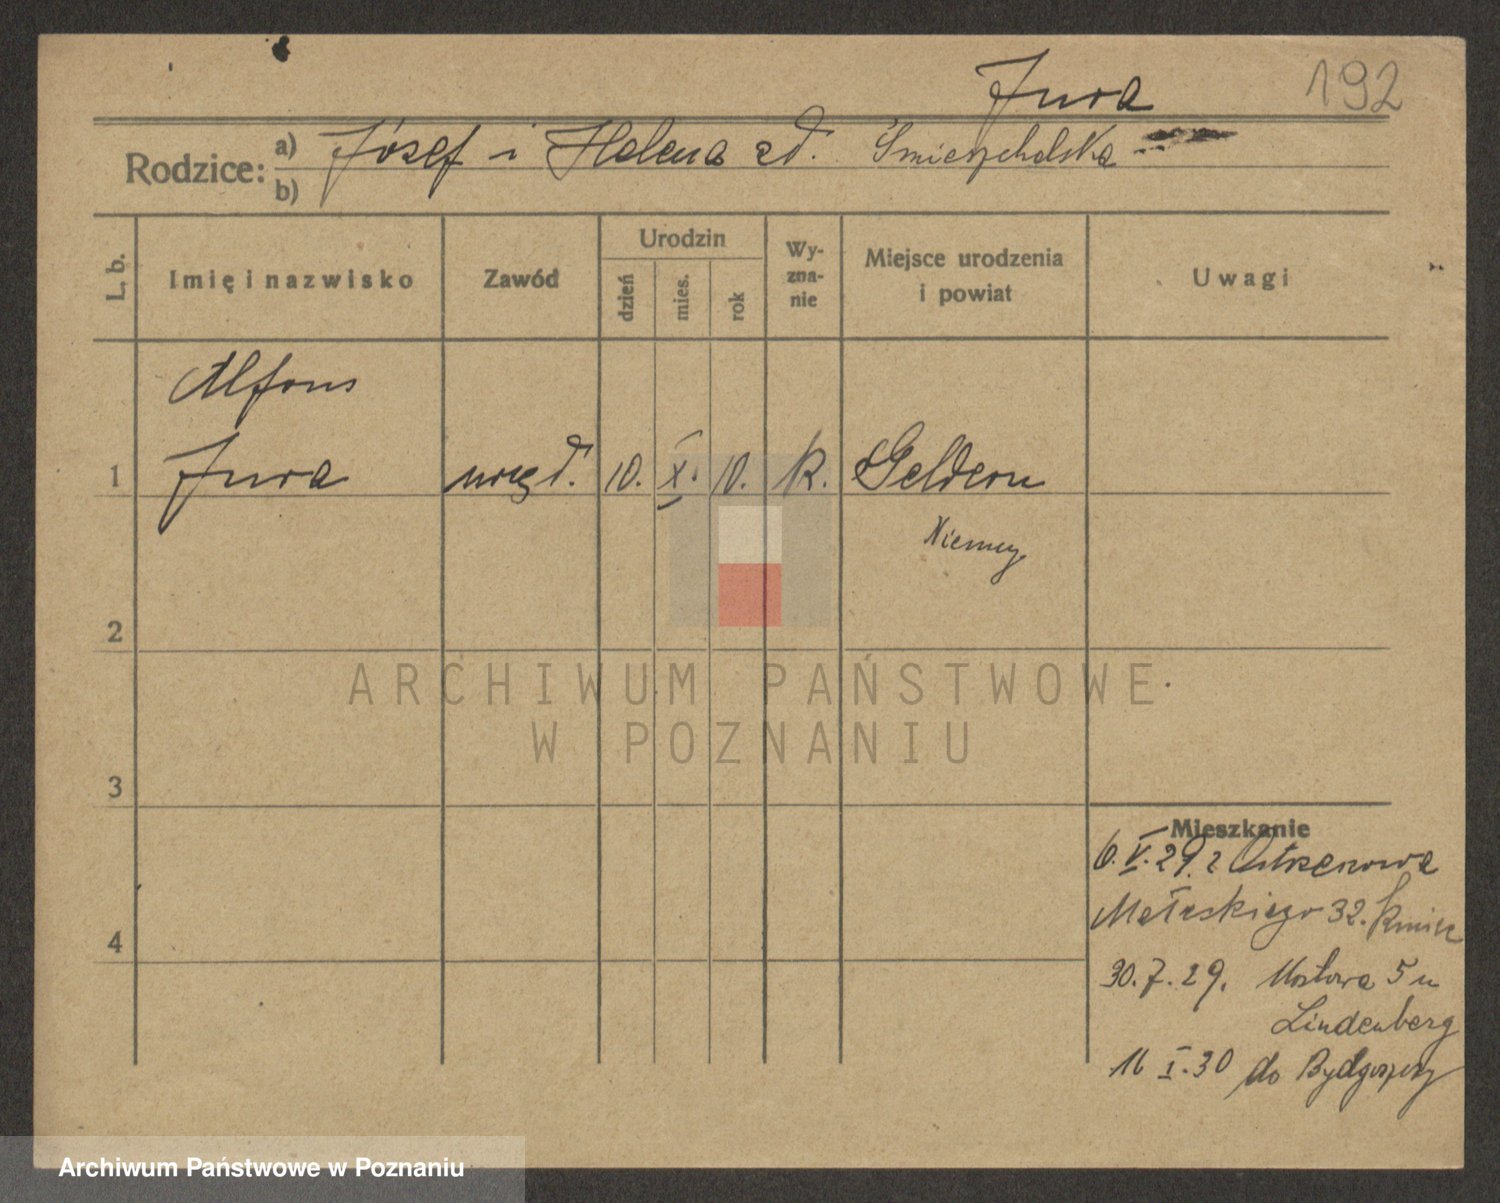 192
Jura
Rodzice: a) Józef i Helena zd. Śmierzchalska
b)
L. b.
Imię i nazwisko
Zawód
Urodzin
dzień
mies.
rok
Wy-
zna-
nie
Miejsce urodzenia
i powiat
Uwagi
Alfons
1 Jura urzęd. 10. X. 10. k. Geldern
Niemcy
2
3
4
Mieszkanie
6.V.29. z Ostrzeszowa
32.
30.7.29. Mostowa 5 u
Lindenberg
16 I.30 do Bydgoszczy
ARCHIWUM PAŃSTWOWE
W POZNANIU
Archiwum Państwowe w Poznaniu